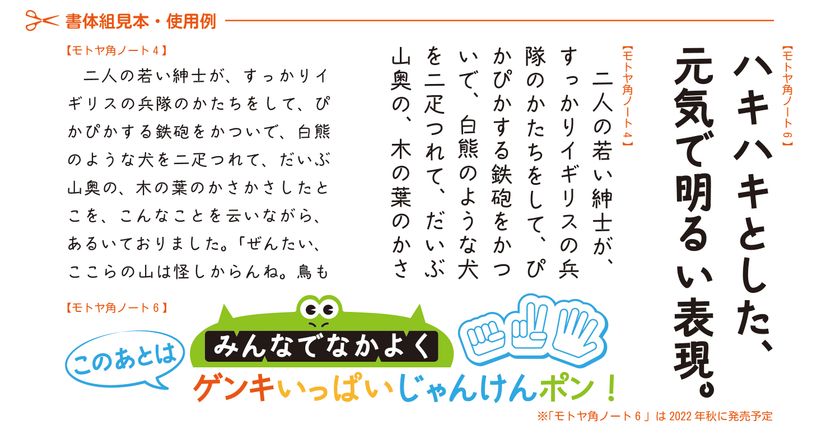 書体組見本・使用例
【モトヤ角ノート4】
二人の若い紳士が、すっかりイ
ギリスの兵隊のかたちをして、ぴ
かぴかする鉄砲をかついで、白熊
のような犬を二疋つれて、だいぶ
山奥の、木の葉のかさかさしたと
こを、こんなことを云いながら、
あるいておりました。「ぜんたい、
ここらの山は怪しからんね。鳥も
【モトヤ角ノート6】
ハキハキとした、
元気で明るい表現。
【モトヤ角ノート4】
二人の若い紳士が、
すっかりイギリスの兵
隊のかたちをして、ぴ
かぴかする鉄砲をかつ
いで、白熊のような犬
を二疋つれて、だいぶ
山奥の、木の葉のかさ
【モトヤ角ノート6】
このあとは
みんなでなかよく
ゲンキいっぱいじゃんけんポン！
※「モトヤ角ノート6」は2022年秋に発売予定